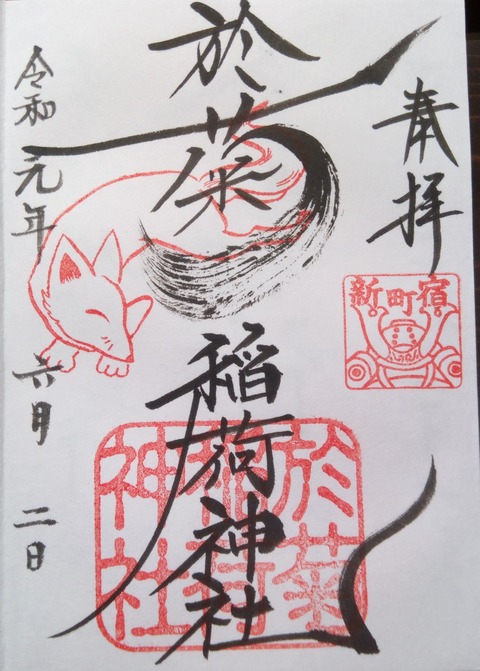 奉拝
新町宿
於菊稲荷神社
於菊稲荷神社
令和元年六月二日